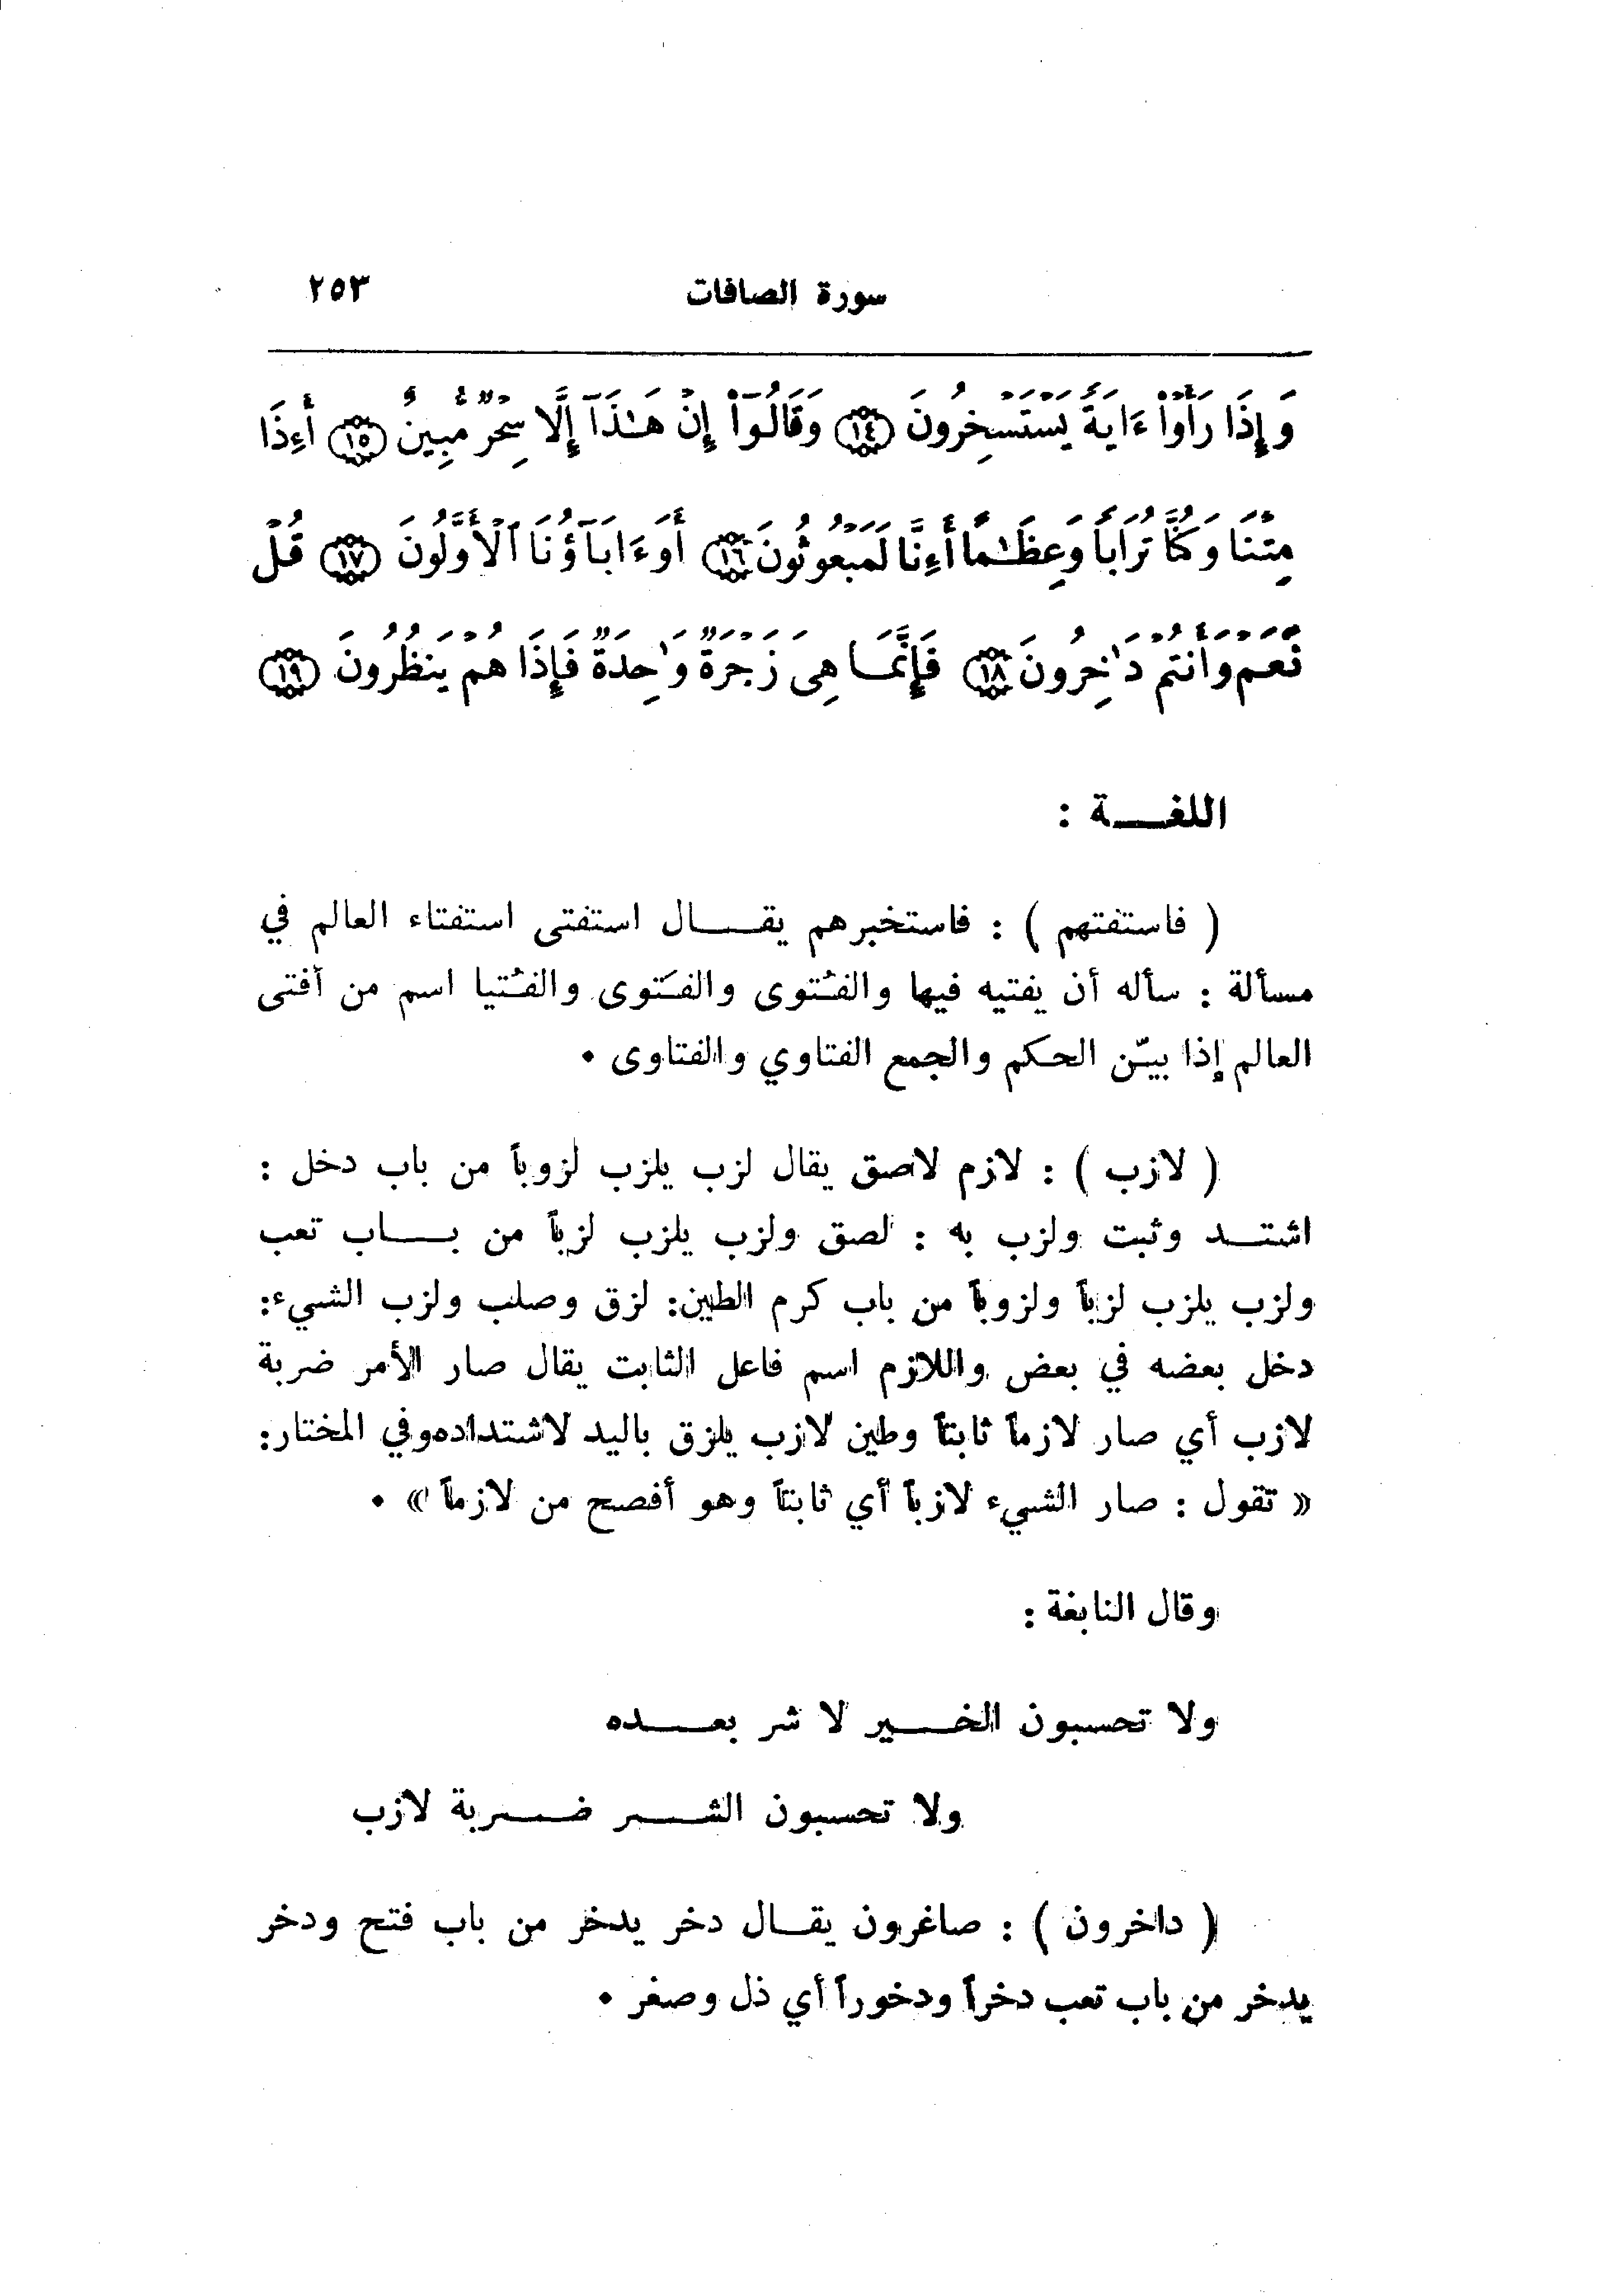 سورة الصافات ٢٥٣
وَإِذَا رَأَوْاْ ءَايَةً يَسْتَسْخِرُونَ ﴿١٤﴾ وَقَالُوٓاْ إِنْ هَـٰذَآ إِلَّا سِحْرٌ مُّبِينٌ ﴿١٥﴾ أَءِذَا
مِتْنَا وَكُنَّا تُرَابًا وَعِظَـٰمًا أَءِنَّا لَمَبْعُوثُونَ ﴿١٦﴾ أَوَءَابَآؤُنَا ٱلْأَوَّلُونَ ﴿١٧﴾ قُلْ
نَعَمْ وَأَنتُمْ دَٰخِرُونَ ﴿١٨﴾ فَإِنَّمَا هِىَ زَجْرَةٌ وَٰحِدَةٌ فَإِذَا هُمْ يَنظُرُونَ ﴿١٩﴾
اللغــة :
( فاستفتهم ) : فاستخبرهم يقــال استفتى استفتاء العالم في
مسألة : سأله أن يفتيه فيها والفُتوى والفَتوى والفُتيا اسم من أفتى
العالم إذا بيّن الحكم والجمع الفتاوي والفتاوى .
( لازب ) : لازم لاصق يقال لزب يلزب لزوباً من باب دخل :
اشتــد وثبت ولزب به : لصق ولزب يلزب لزباً من بــاب تعب
ولزب يلزب لزباً ولزوباً من باب كرم الطين: لزق وصلب ولزب الشيء:
دخل بعضه في بعض واللازم اسم فاعل الثابت يقال صار الأمر ضربة
لازب أي صار لازماً ثابتاً وطين لازب يلزق باليد لاشتداده وفي المختار:
« تقول : صار الشيء لازباً أي ثابتاً وهو أفصح من لازماً » .
وقال النابغة :
ولا تحسبون الخــير لا شر بعــده
ولا تحسبون الشــر ضــربة لازب
( داخرون ) : صاغرون يقــال دخر يدخر من باب فتح ودخر
يدخر من باب تعب دخراً ودخوراً أي ذل وصغر .